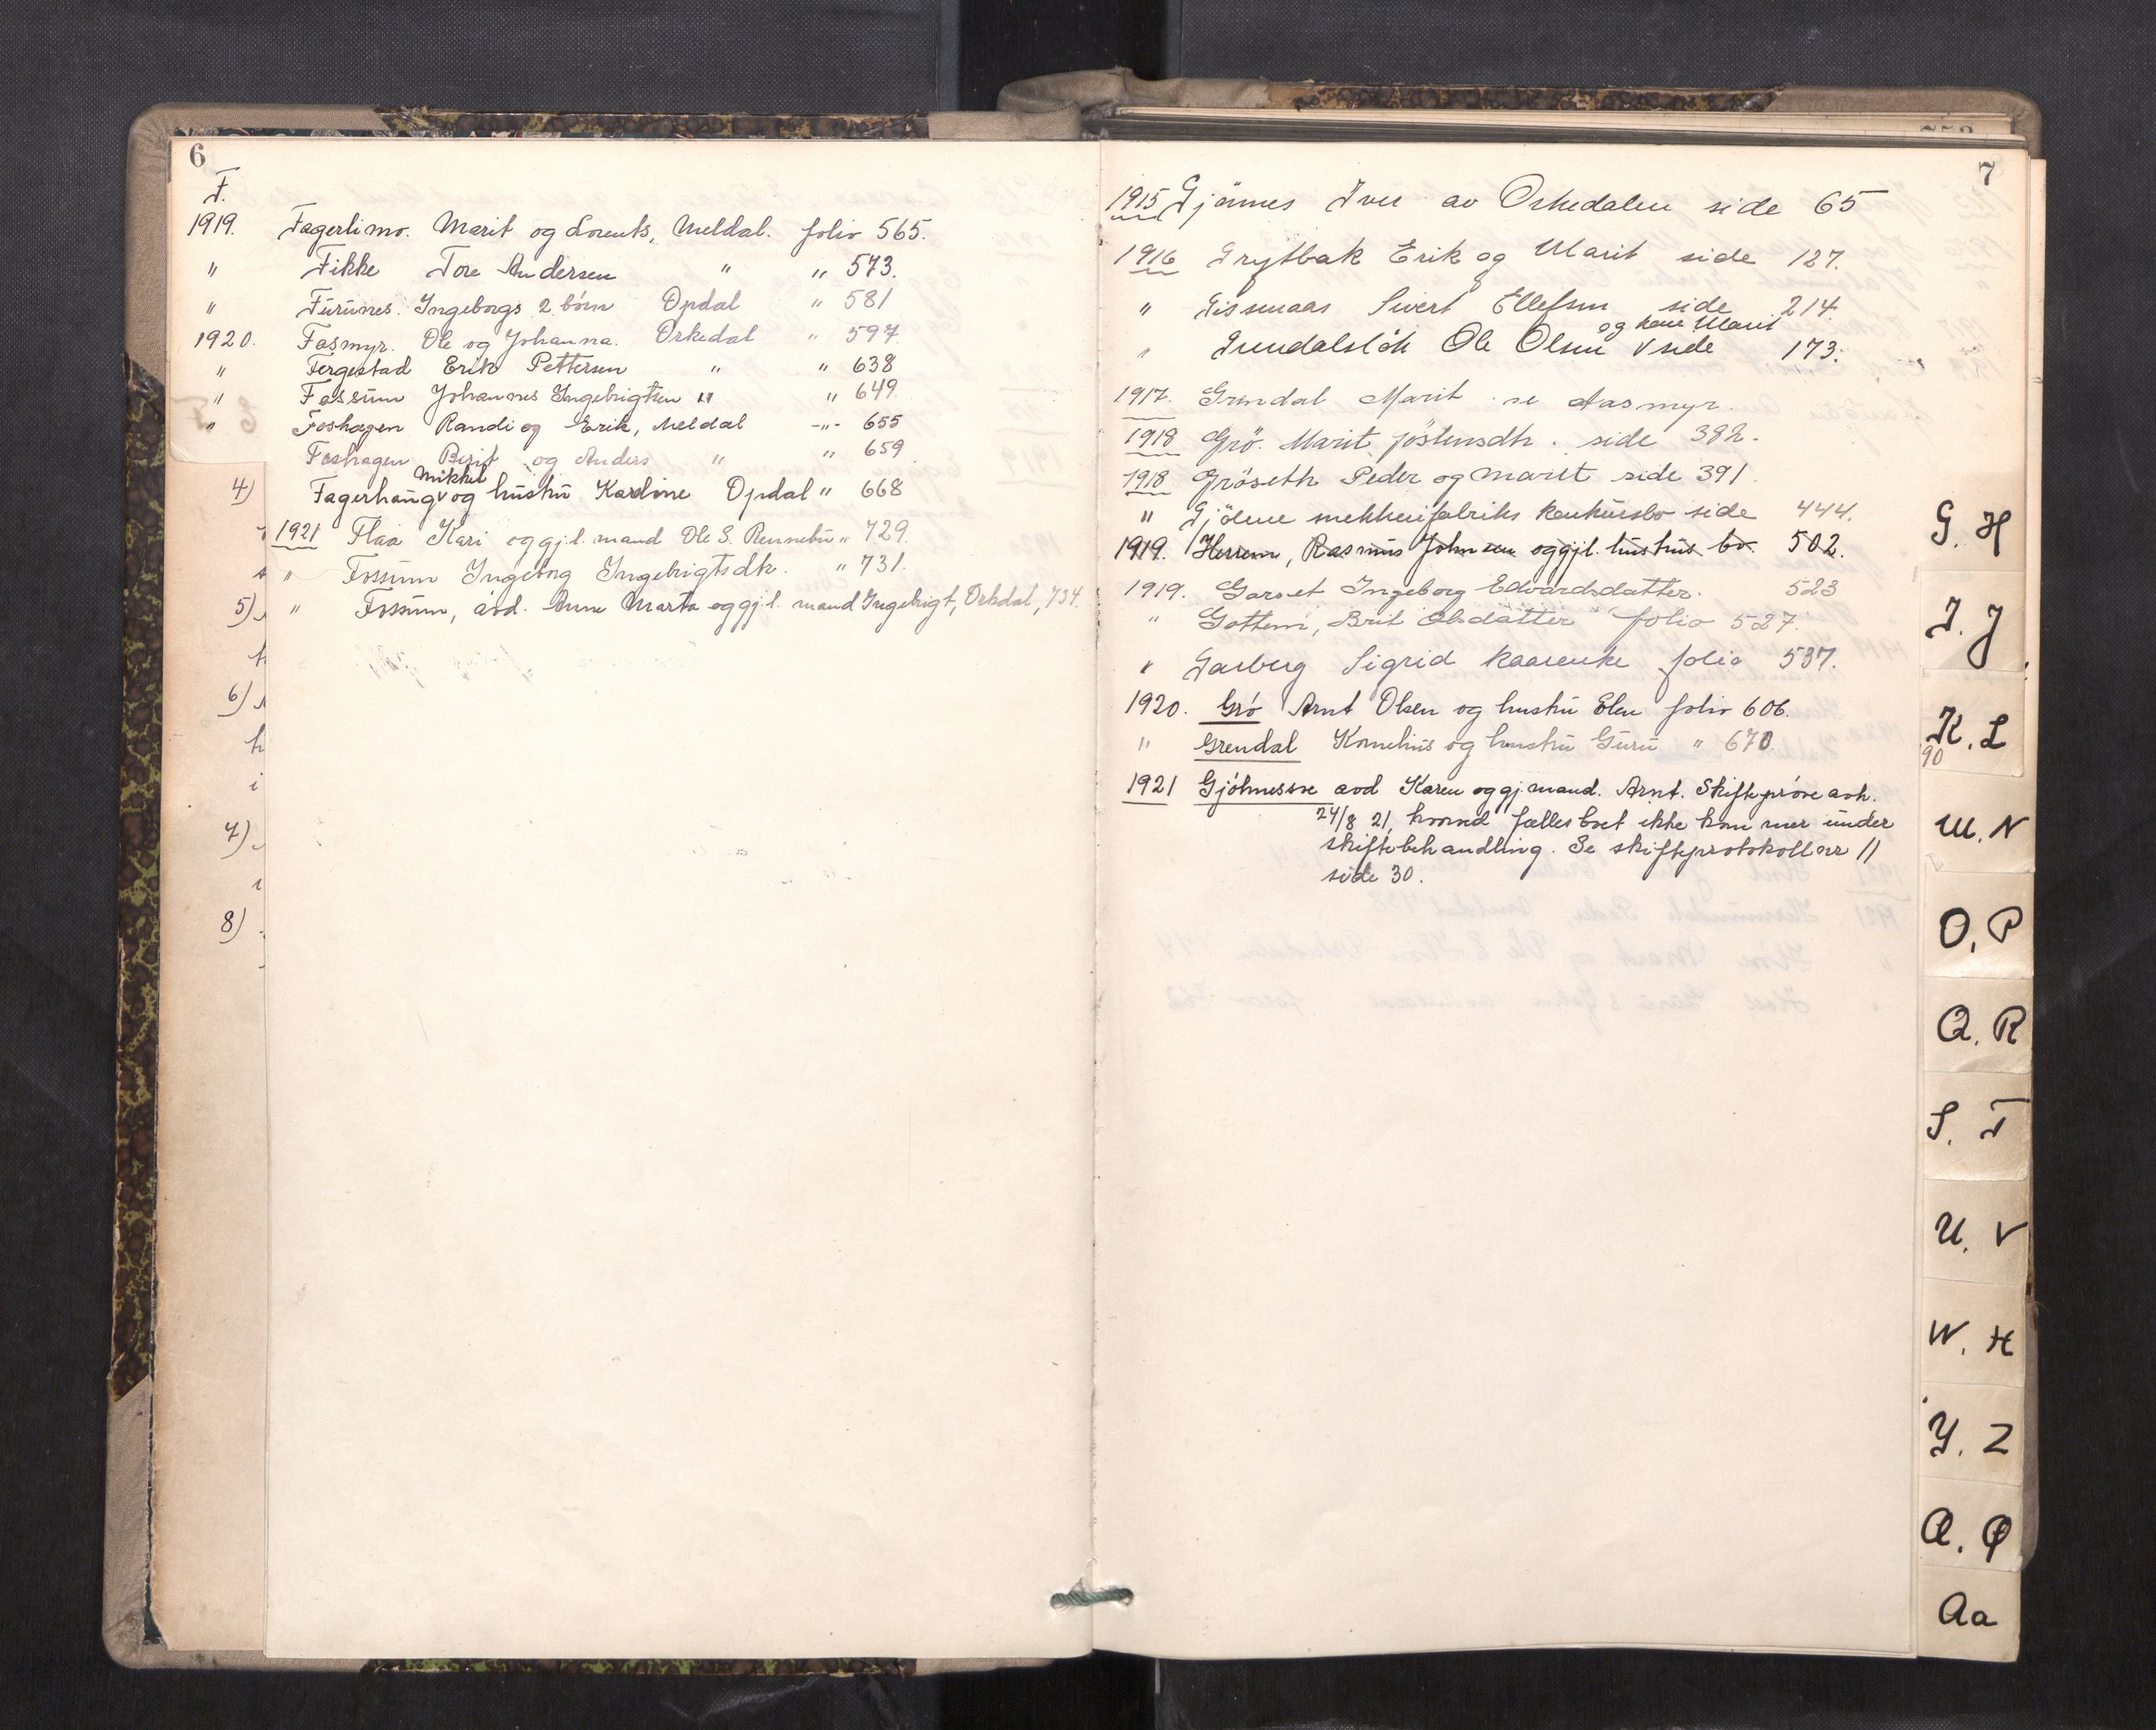 6
F.
1919. Fagerlimo. Marit og Lorents, Meldal. folio 565.
" Fikke Tore Andersen " " 573.
" Furunes. Ingeborgs 2 börn Opdal " 581
1920. Fasmyr. Ole og Johanna. Orkedal " 597.
" Fergestad Erik Pettersen " " 638
" Fossum Johannes Ingebrigtsen " " 649.
" Foshagen Randi og Erik, Meldal -"- 655
Foshagen Berit og Anders " " 659
Mikkel
4) Fagerhaug v og hustru Kardine Opdal " 668
1921 Flaa Kari og gjl. mand Ole S. Rennebu " 729.
" Fossum Ingeborg Ingebrigtsdtr. " 731.
5) " Fossum, avd. Anne Marta og gjl. mand Ingebrigt, Orkdal, 734.
6)
7)
8)
7
1915 Gjönnes Iver av Orkedalen side 65
1916 Grytbak Erik og Marit side 127.
" Gissenaas Sivert Ellefsen side 214.
og kone Marit
" Grendalslök Ole Olsen v side 173.
1917. Grendal Marit se Aasmyr.
1918 Grö. Marit Jöstensdtr. side 382.
1918 Gröseth Peder og Marit side 391.
" Gjölme snekkerifabriks konkursbo side 444.
1919. Herrem, Rasmus Johnsen og gjl. hustrus bo. 502.
1919. Garset Ingeborg Edvardsdatter. 523
" Gottem, Brit Olsdatter folio 527.
" Garberg Sigrid Kaarenke folio 537.
1920. Grö Arnt Olsen og hustru Elen folio 606.
" Grendal Kornelius og hustru Guru " 670
1921 Gjölmesøe avd Karen og gj. mand. Arnt. Skifteprøve avh.
24/8 21, hvorved fællesboet ikke kom mer under
skiftebehandling. Se skifteprotokoll nr 11
side 30.
G. H
I. J
K. L
90
M. N
O. P
Q. R
S. T
U. V
W. H
Y. Z
Æ. Ø
Aa